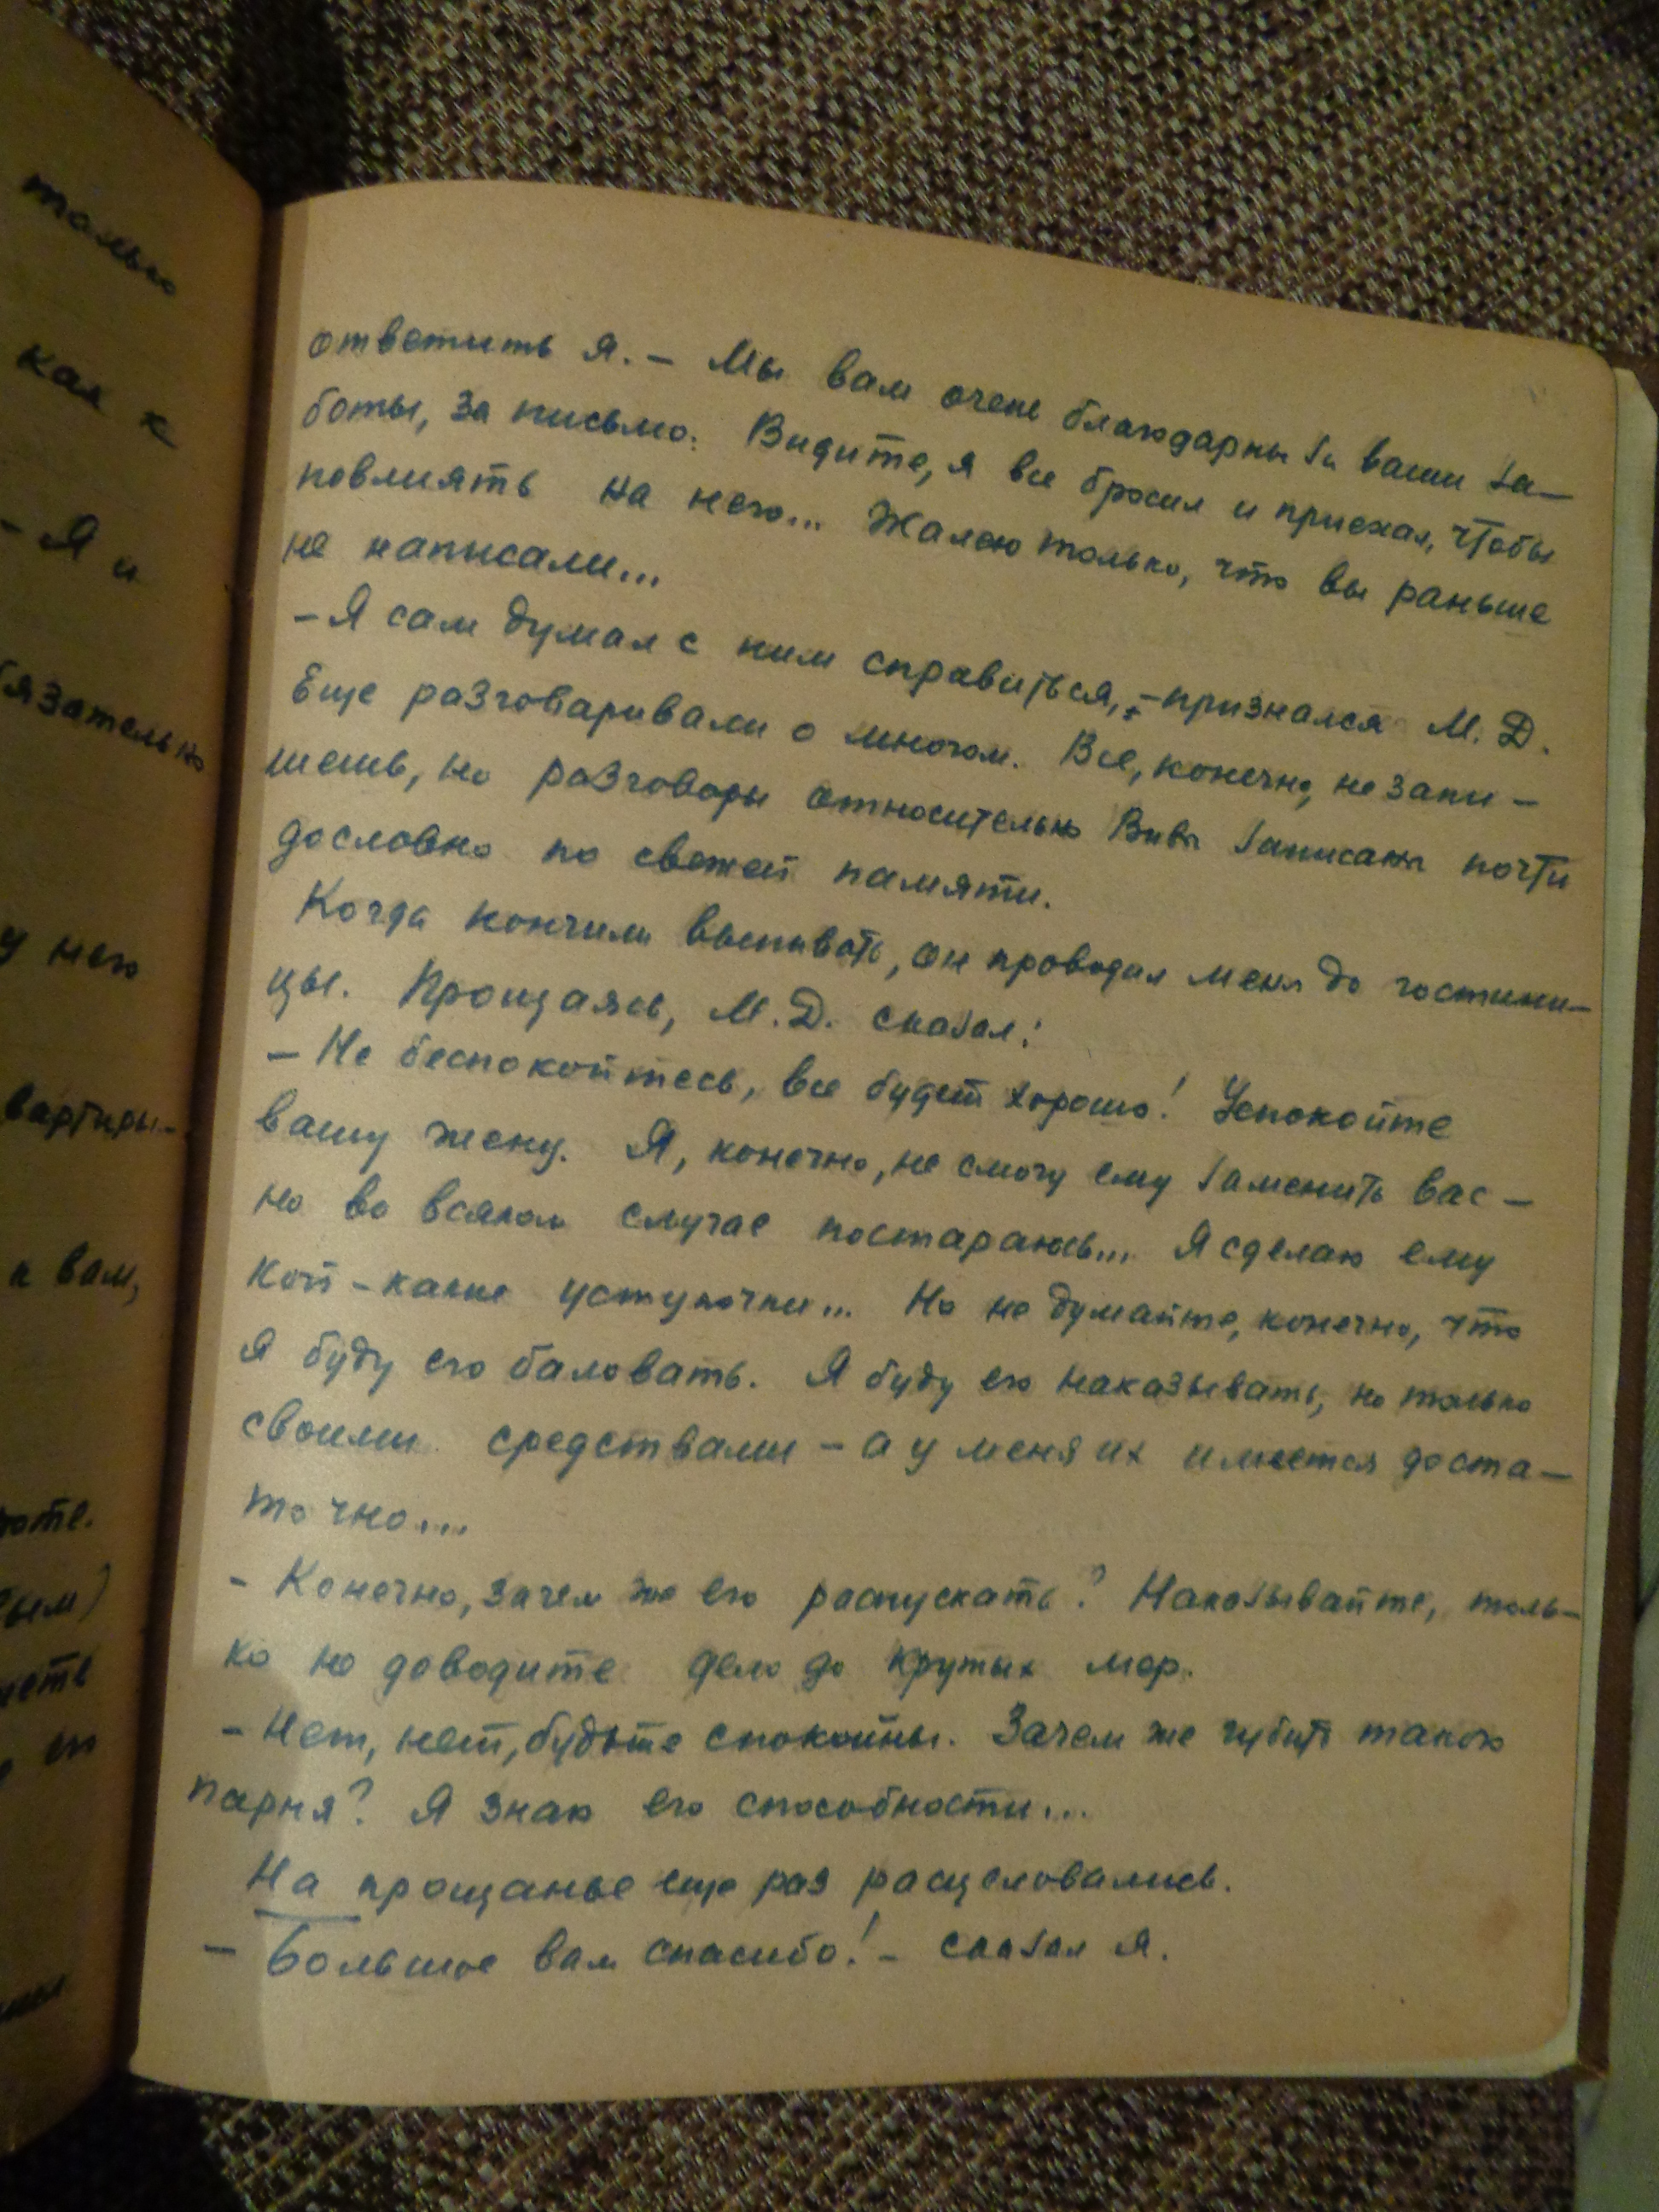 только
как к
- Я и
бязательно
у него
вартиры-
к вам,
ым)
ответить я. - Мы вам очень благодарны за ваши за-
боты, за письмо. Видите, я все бросил и приехал, чтобы
повлиять на него... Жалею только, что вы раньше
не написали...
- Я сам думал с ним справиться, - признался М.Д.
Еще разговаривали о многом. Все, конечно, не запи-
шешь, но разговоры относительно Вивы записаны почти
дословно по свежей памяти.
Когда кончили выпивать, он проводил меня до гостини-
цы. Прощаясь, М.Д. сказал:
- Не беспокойтесь, все будет хорошо! Успокойте
вашу жену. Я, конечно, не смогу ему заменить вас -
но во всяком случае постараюсь... Я сделаю ему
кой-какие уступочки... Но не думайте, конечно, что
я буду его баловать. Я буду его наказывать, но только
своими средствами - а у меня их имеется доста-
точно...
- Конечно, зачем же его распускать? Наказывайте, толь-
ко не доводите дело до крутых мер.
- Нет, нет, будьте спокойны. Зачем же губить такого
парня? Я знаю его способности...
На прощанье еще раз расцеловались.
- Большое вам спасибо! - сказал я.